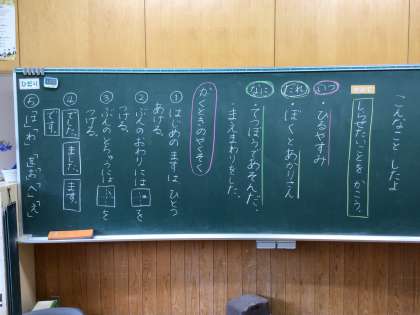 こんなこと したよ
しらせたいことを かこう。
いつ
・ひるやすみ
だれ
・ぼくとあかりさん
なに
・てつぼうであそんだ。
・まえまわりをした。
かくときのやくそく
① はじめの ますは ひとつ
あける。
② ぶんのおわりには 。を
つける。
③ ぶんのとちゅうには 、を
つける。
④ でした。ました。ます。
です。